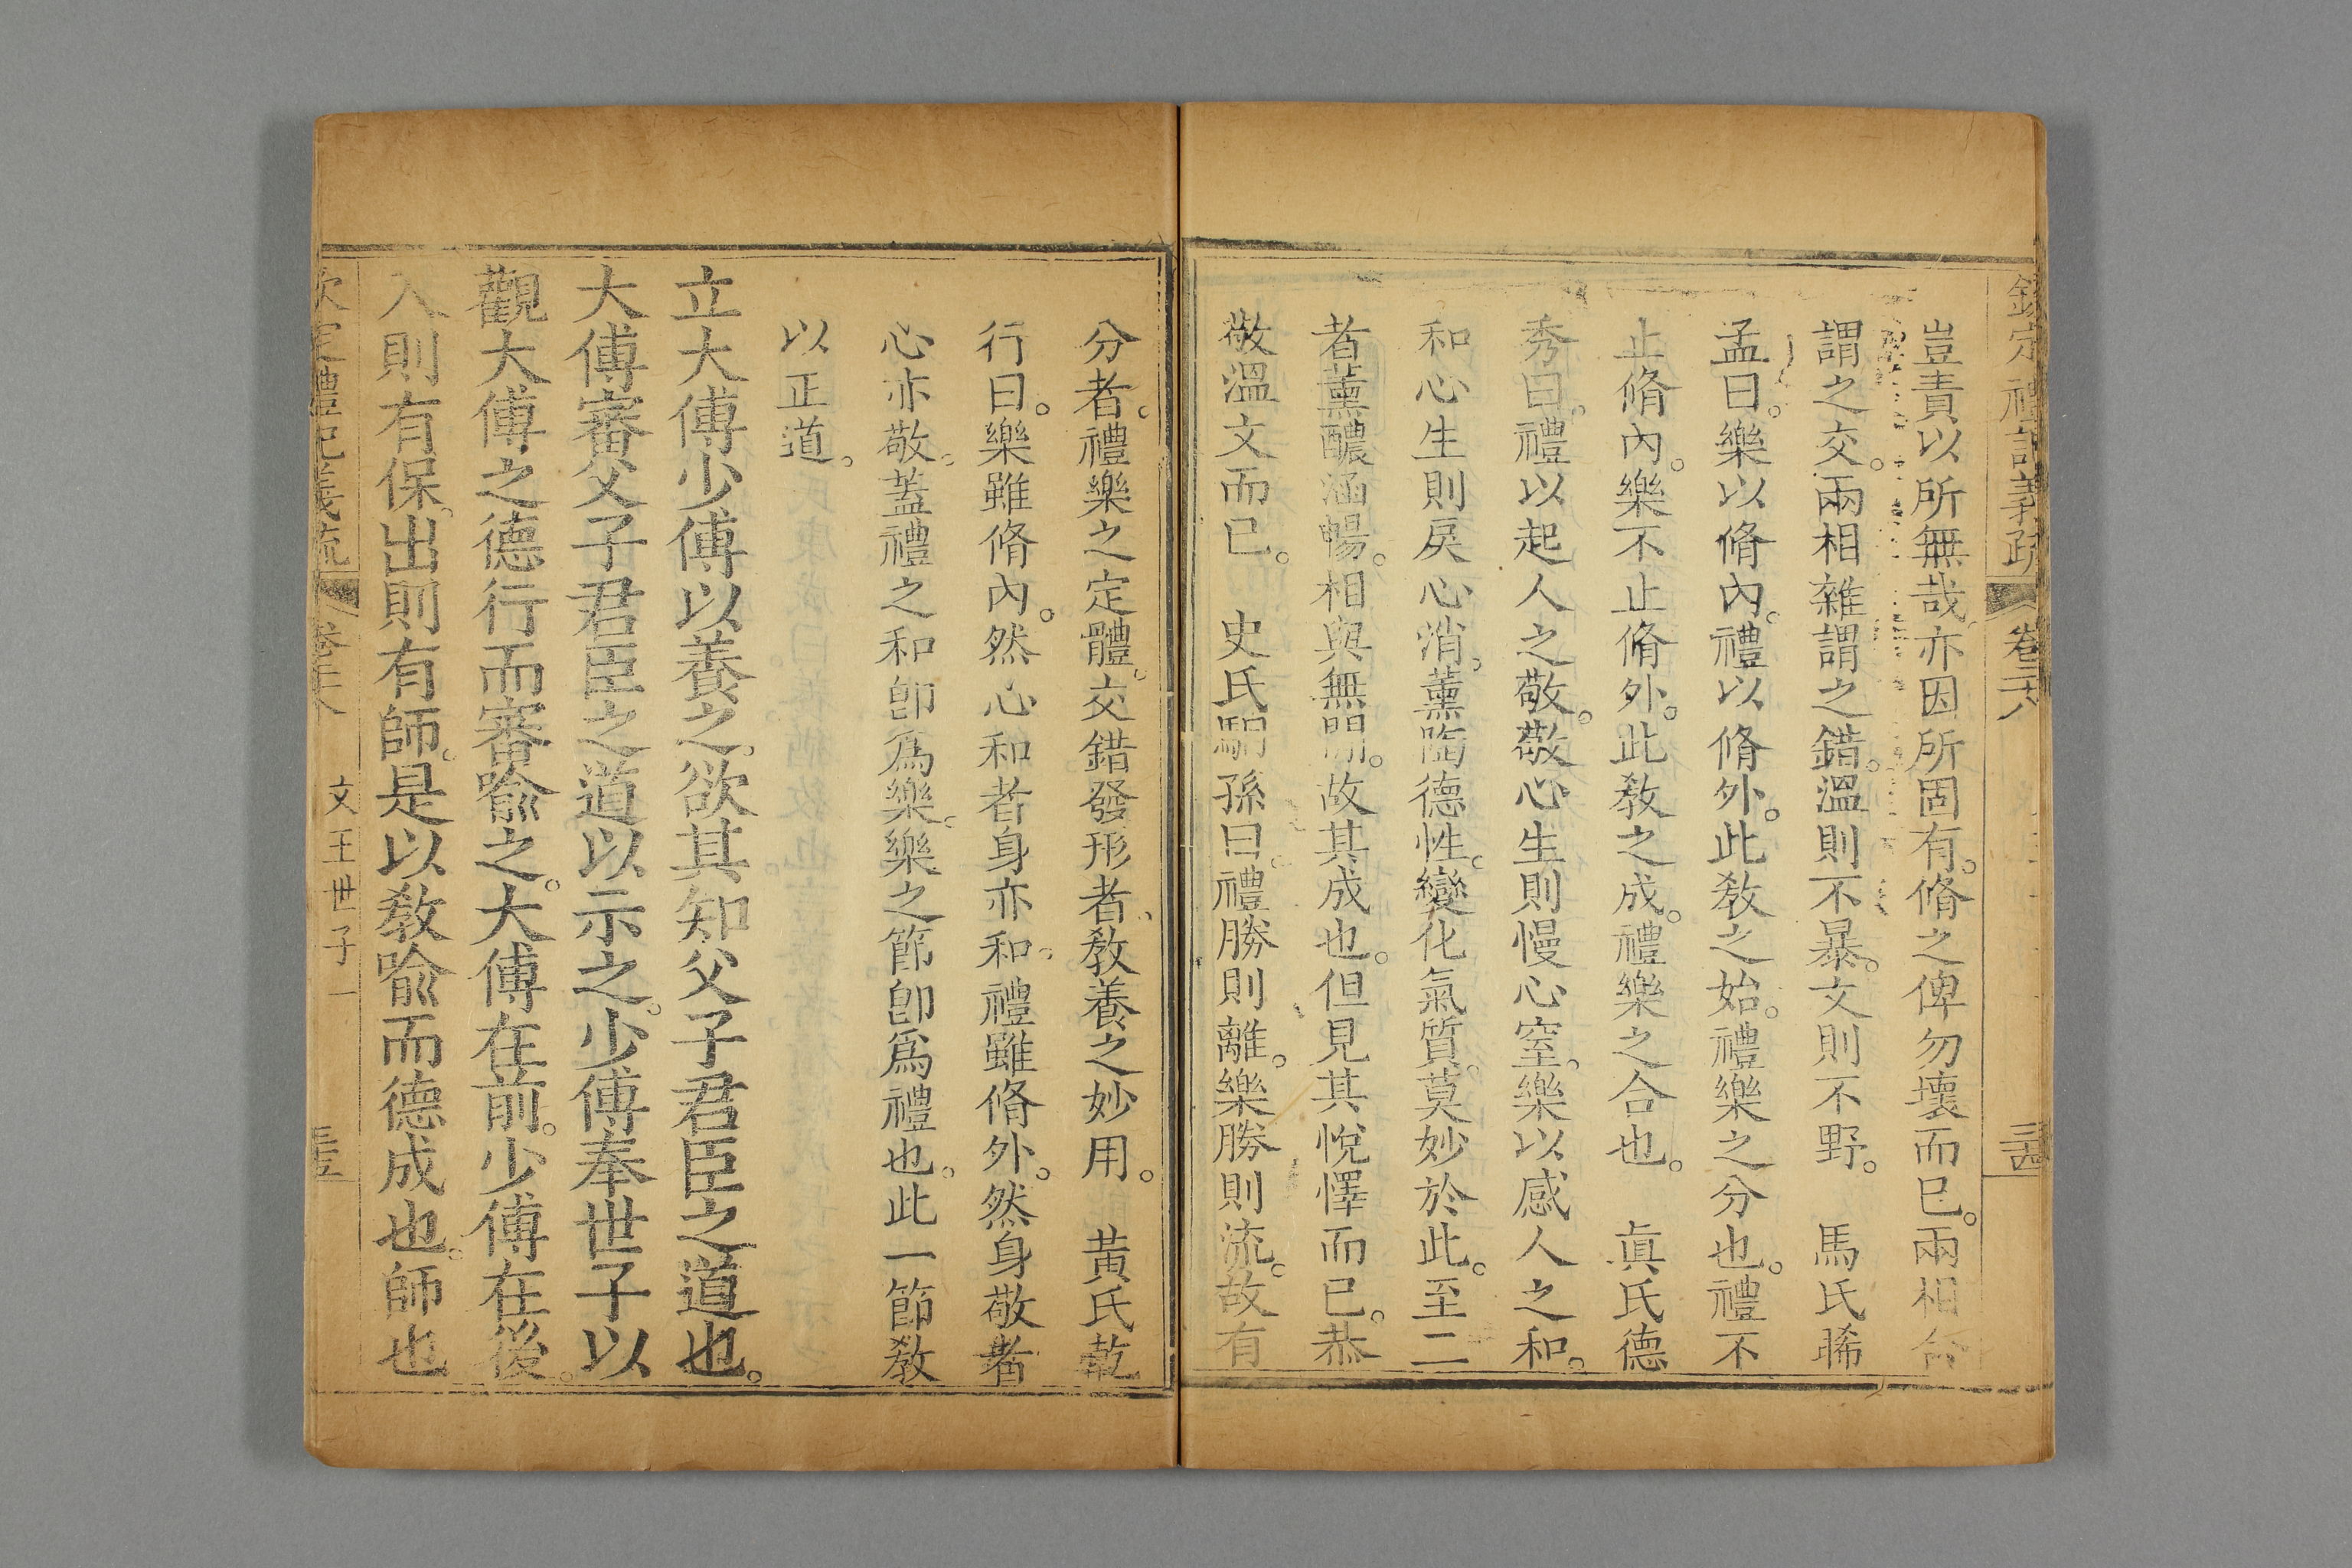 欽定禮記義疏 卷二十八 三十四
豈責以所無哉亦因所固有。脩之俾勿壞而已。兩相合
謂之交。兩相雜謂之錯。溫則不暴。文則不野。 馬氏晞
孟曰。樂以脩內。禮以脩外。此敎之始。禮樂之分也。禮不
止脩內。樂不止脩外。此敎之成。禮樂之合也。 眞氏德
秀曰。禮以起人之敬。敬心生則慢心窒。樂以感人之和。
和心生則戾心消。薰陶德性。變化氣質。莫妙於此。至二
者薰醲涵暢。相與無閒。故其成也。但見其悅懌而已。恭
敬溫文而已。 史氏駧孫曰。禮勝則離。樂勝則流。故有
分者。禮樂之定體。交錯發形者、敎養之妙用。 黃氏乾
行曰。樂雖脩內。然心和者身亦和。禮雖脩外。然身敬者
心亦敬。蓋禮之和卽爲樂。樂之節卽爲禮也。此一節敎
以正道。
立大傅少傅以養之。欲其知父子君臣之道也。
大傅審父子君臣之道以示之。少傅奉世子以
觀大傅之德行而審喩之。大傅在前。少傅在後。
入則有保。出則有師。是以敎喩而德成也。師也
欽定禮記義疏 卷二十八 文王世子一 三十五